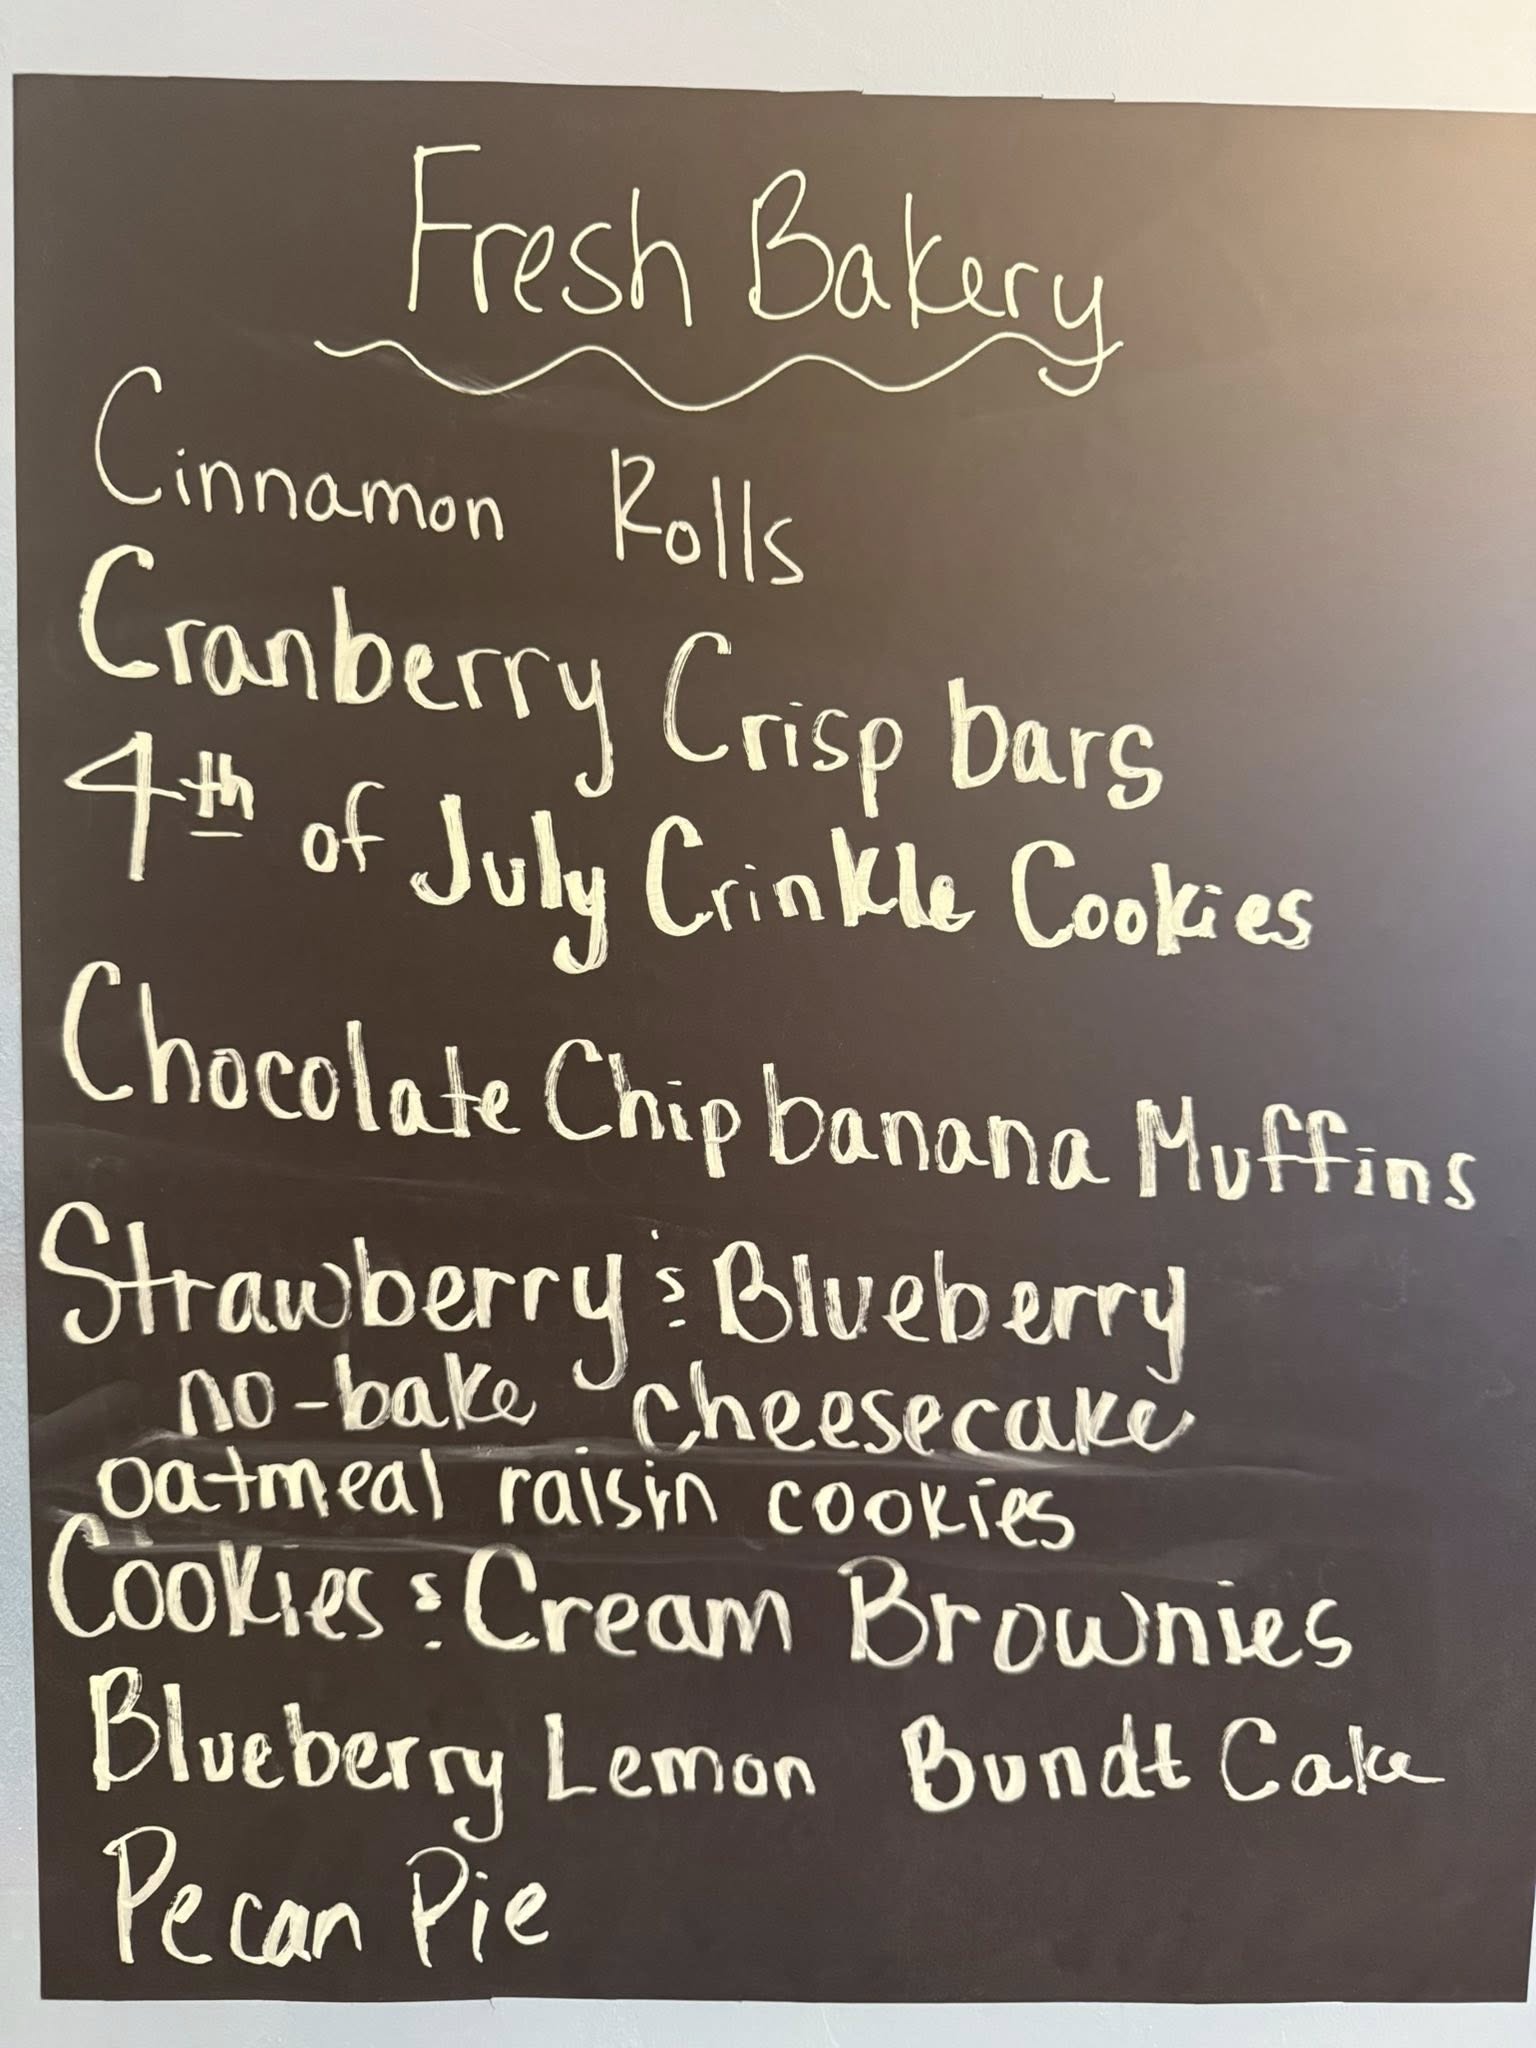 Fresh Bakery
Cinnamon Rolls
Cranberry Crisp bars
4th of July Crinkle Cookies
Chocolate Chip banana Muffins
Strawberry & Blueberry
no-bake cheesecake
oatmeal raisin cookies
Cookies & Cream Brownies
Blueberry Lemon Bundt Cake
Pecan Pie